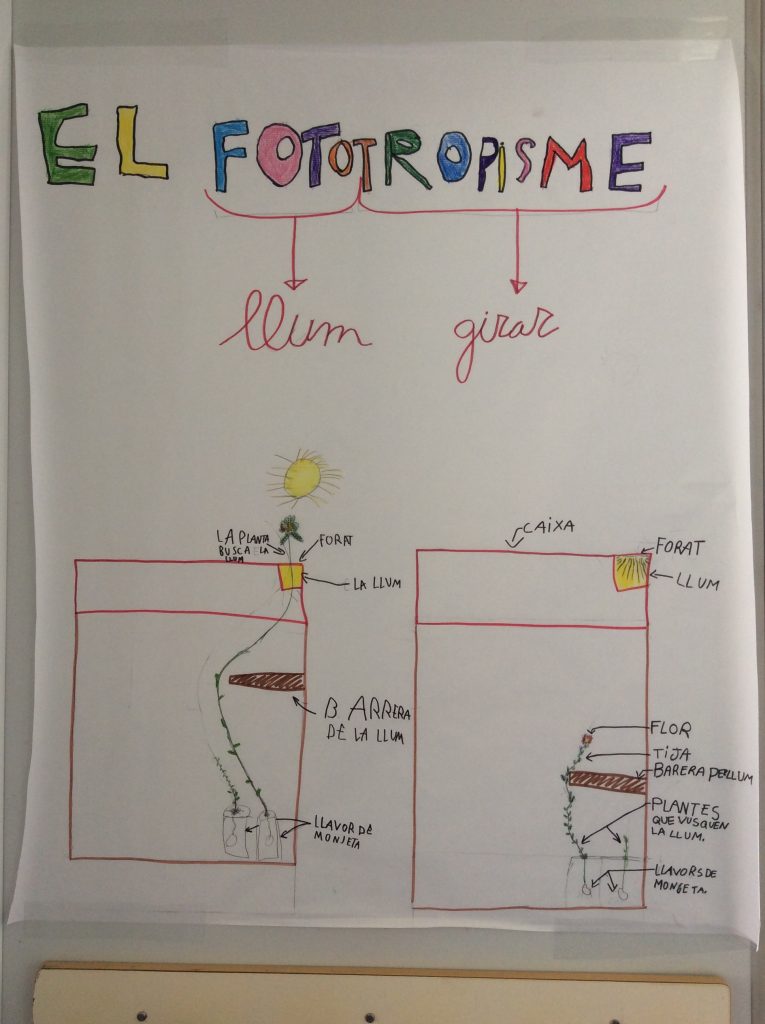 EL FOTOTROPISME
llum girar
LA PLANTA
BUSCA LA
LLUM
FORAT
LA LLUM
BARRERA
DE LA LLUM
LLAVOR DE
MONJETA
CAIXA
FORAT
LLUM
FLOR
TIJA
BARERA PERLLUM
PLANTES
QUE VUSQUEN
LA LLUM.
LLAVORS DE
MONGETA.